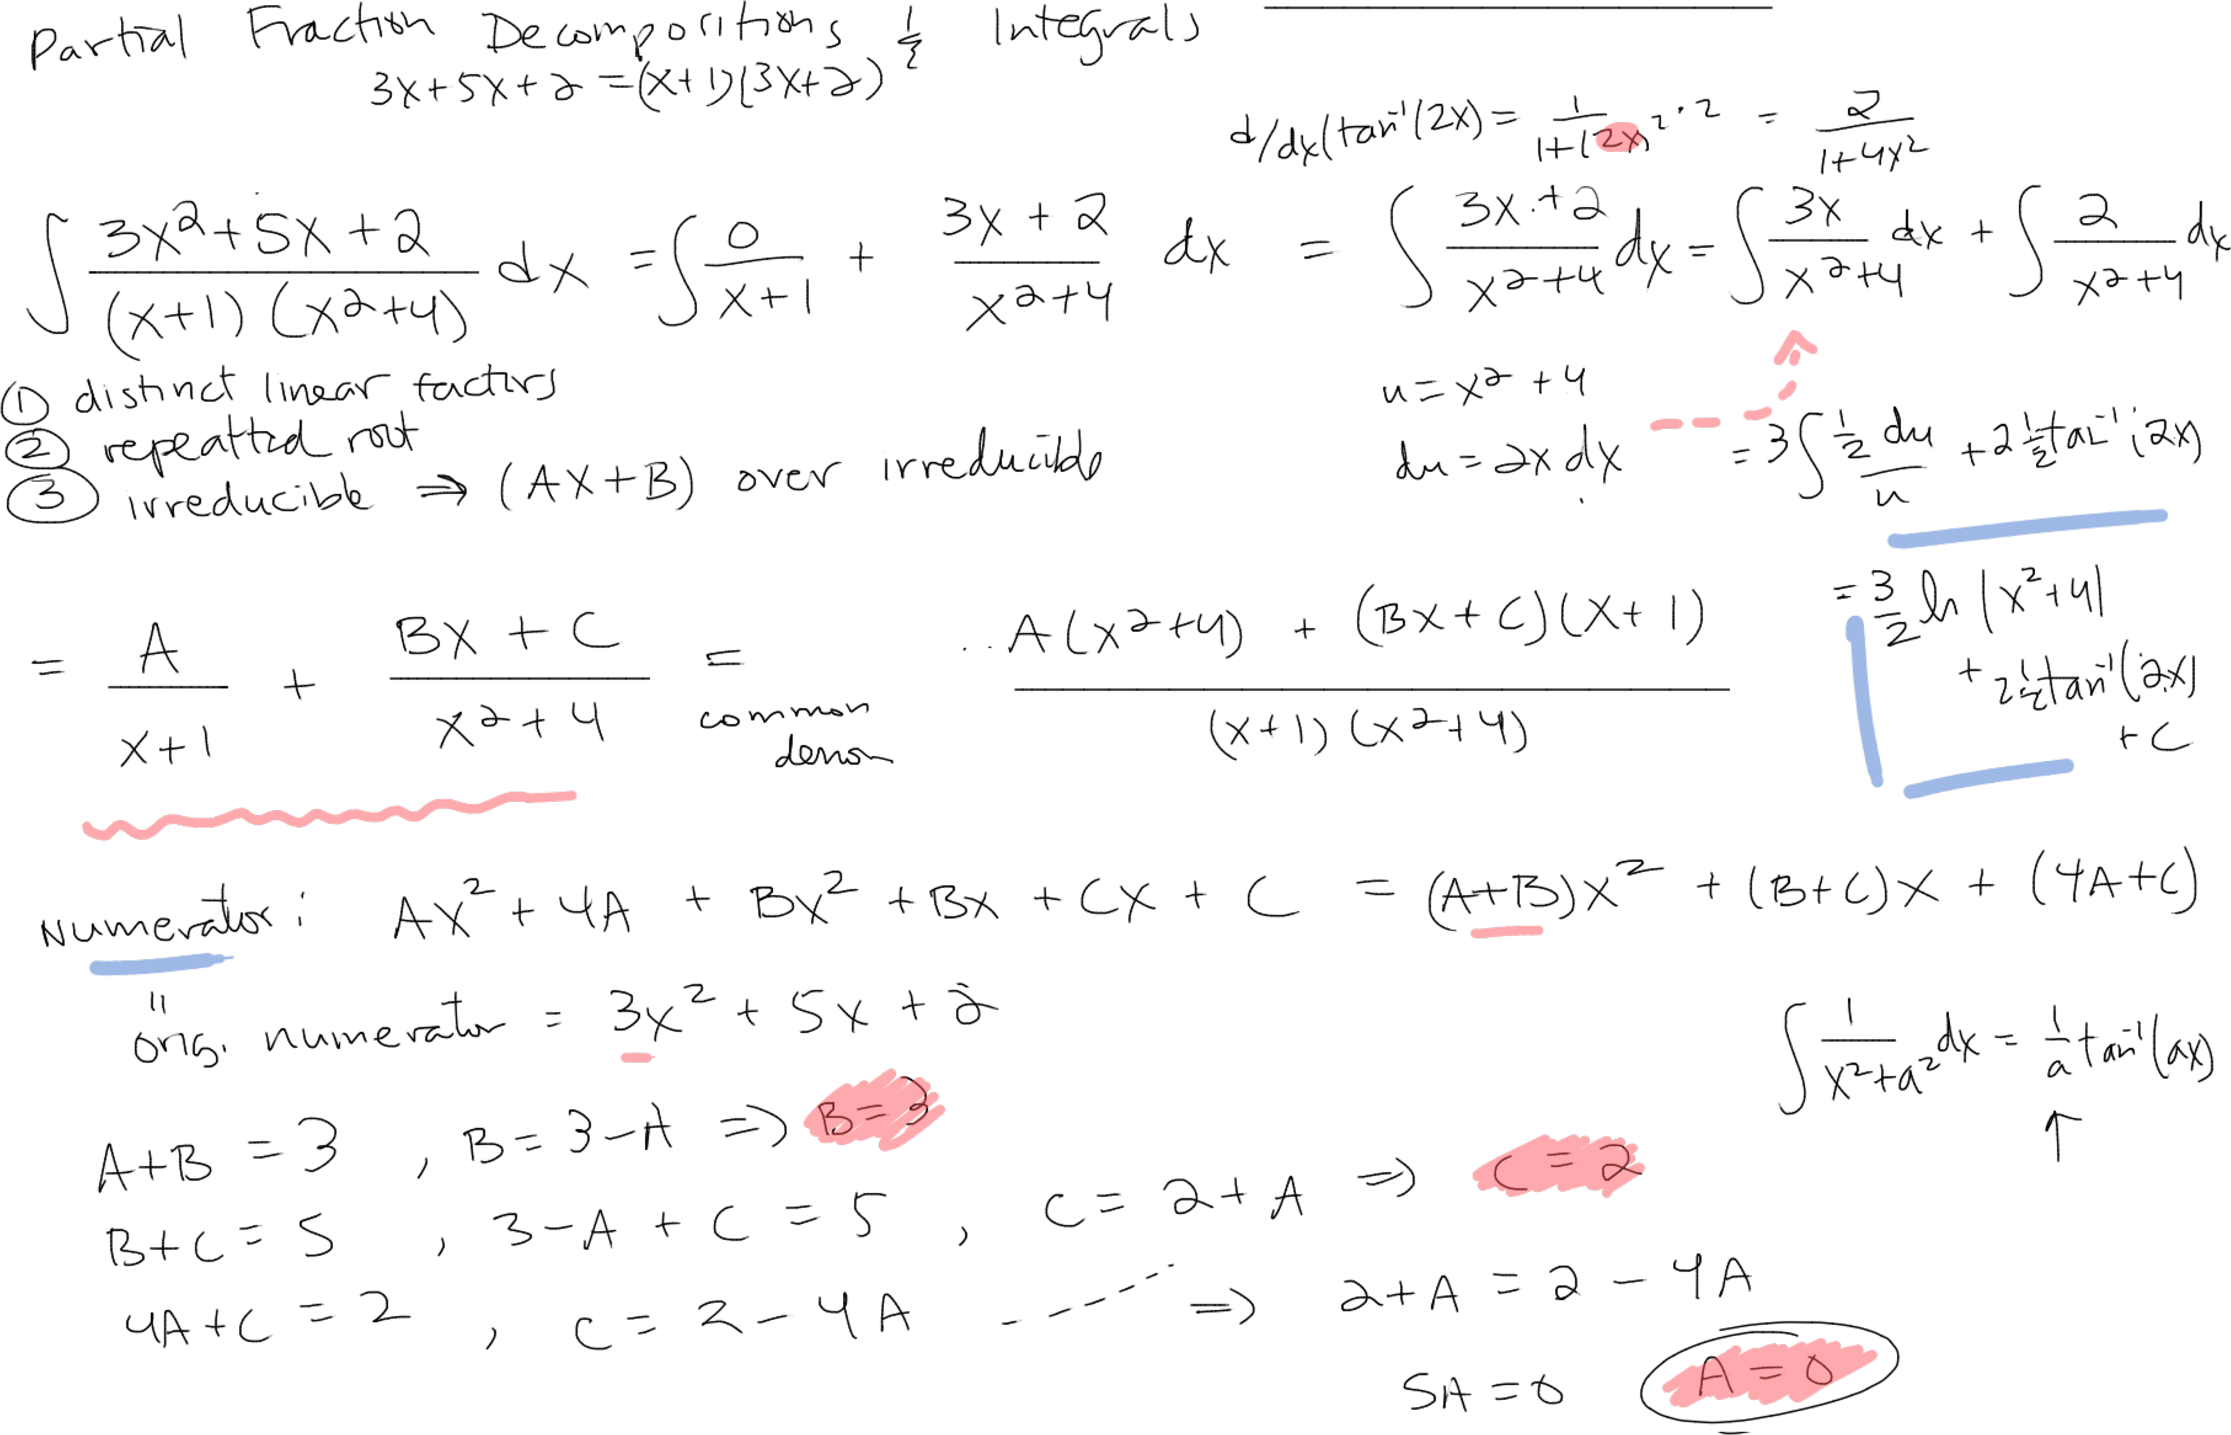 Partial Fraction Decompositions & Integrals
3x+5x+2 = (x+1)(3x+2)
d/dx(tan⁻¹(2x) = 1/(1+(2x)²) · 2 = 2/(1+4x²)
∫ (3x²+5x+2)/((x+1)(x²+4)) dx = ∫ 0/(x+1) + (3x+2)/(x²+4) dx = ∫ (3x+2)/(x²+4) dx = ∫ 3x/(x²+4) dx + ∫ 2/(x²+4) dx
① distinct linear factors
② repeatted root
③ irreducible ⇒ (Ax+B) over irreducible
u = x²+4
du = 2x dx
= 3∫ ½ du/u + 2 ½ tan⁻¹(2x)
= A/(x+1) + (Bx+C)/(x²+4) = common denom (A(x²+4) + (Bx+C)(x+1))/((x+1)(x²+4))
= 3/2 ln|x²+4|
+ 2 ½ tan⁻¹(2x)
+ C
Numerator: Ax² + 4A + Bx² + Bx + Cx + C = (A+B)x² + (B+C)x + (4A+C)
"
orig. numerator = 3x² + 5x + 2
∫ 1/(x²+a²) dx = 1/a tan⁻¹(ax)
↑
A+B = 3 , B = 3-A ⇒ B=3
B+C = 5 , 3-A + C = 5 , C = 2+A ⇒ C = 2
4A+C = 2 , C = 2-4A ------ ⇒ 2+A = 2-4A
5A = 0 A = 0